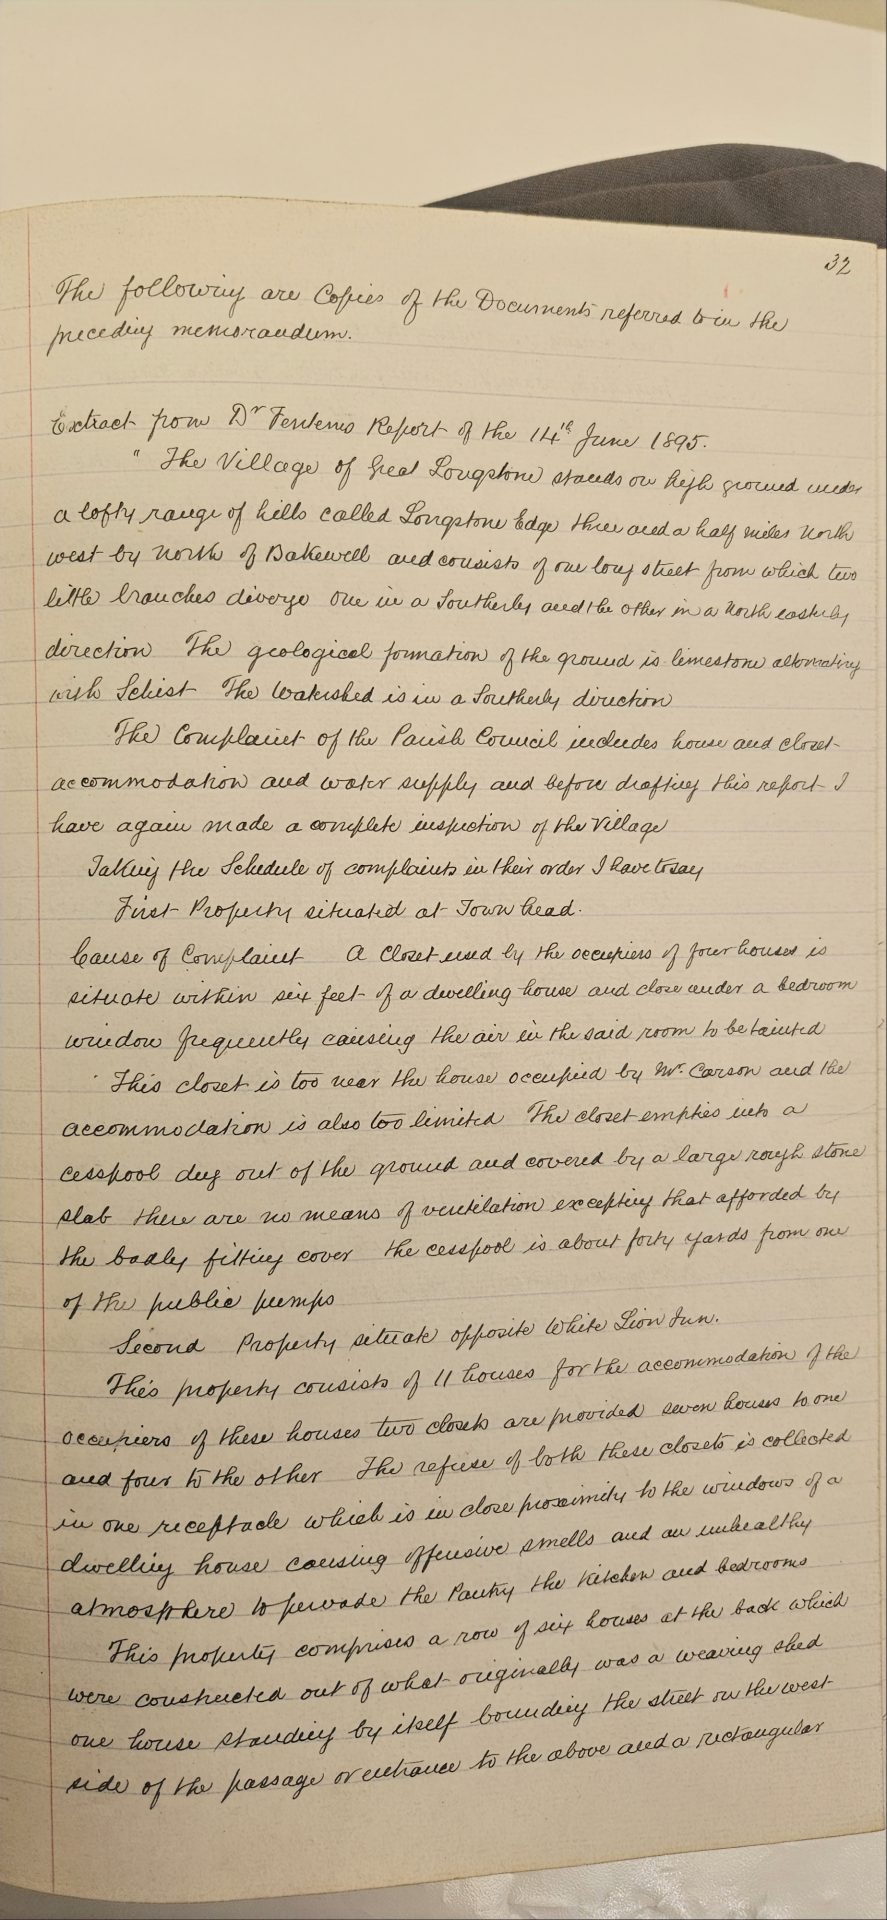 32
The following are Copies of the Documents referred to in the
preceding memorandum.
Extract from Dr Fentems Report of the 14th June 1895.
" The Village of Great Longstone stands on high ground under
a lofty range of hills called Longstone Edge three and a half miles North
west by North of Bakewell and consists of one long street from which two
little branches diverge one in a Southerly and the other in a North easterly
direction The geological formation of the ground is limestone alternating
with Schist The Watershed is in a Southerly direction
The Complaint of the Parish Council includes house and closet
accommodation and water supply and before drafting this report I
have again made a complete inspection of the Village
Taking the Schedule of complaints in their order I have to say
First Property situated at Town head.
Cause of Complaint A Closet used by the occupiers of four houses is
situate within six feet of a dwelling house and close under a bedroom
window frequently causing the air in the said room to be tainted
This closet is too near the house occupied by Mr. Carson and the
accommodation is also too limited The closet empties into a
cesspool dug out of the ground and covered by a large rough stone
slab there are no means of ventilation excepting that afforded by
the badly fitting cover the cesspool is about forty yards from one
of the public pumps
Second Property situate opposite White Lion Inn.
This property consists of 11 houses for the accommodation of the
occupiers of these houses two closets are provided seven houses to one
and four to the other The refuse of both these closets is collected
in one receptacle which is in close proximity to the windows of a
dwelling house causing offensive smells and an unhealthy
atmosphere to pervade the Pantry the Kitchen and bedrooms
This property comprises a row of six houses at the back which
were constructed out of what originally was a weaving shed
one house standing by itself bounding the street on the west
side of the passage or entrance to the above and a rectangular